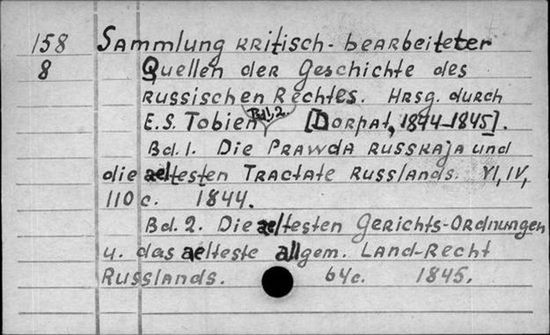 158 Sammlung kritisch-bearbeiteter
8 Quellen der Geschichte des
Russischen Rechtes. Hrsg. durch
Bd. 2.
E.S. Tobien [Dorpat, 1844-1845].
Bd. 1. Die Prawda Russkaja und
die aeltesten Tractate Russlands. VI, IV,
110 c. 1844.
Bd. 2. Die aeltesten Gerichts-Ordnungen
u. das aelteste allgem. Land-Recht
Russlands. 64c. 1845.